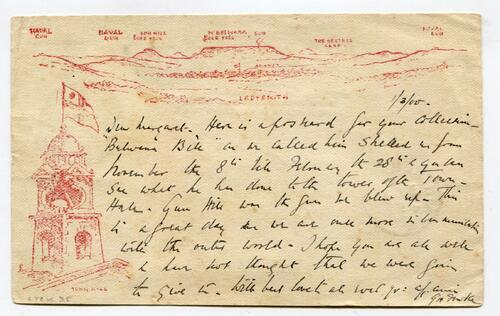 NAVAL GUN NAVAL GUN GUN HILL Mt BULWANA GUN NAVAL GUN
LADYSMITH
1/3/00.
Dear Margaret. Here is a postcard for your collection
"Bulwana Bill" as we called him shelled us from
November the 8th till February the 28th & you can
see what he has done to the tower of the Town-
Hall. Gun Hill was the Gun we blew up. This
is a great day as we are once more in communication
with the outer world. I hope you are all well
& have not thought that we were going
to give in. With best love to all
TOWN HALL